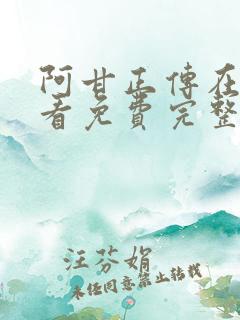 阿甘正傳在
看免費完整
汪芬娟
未经同意禁止转载